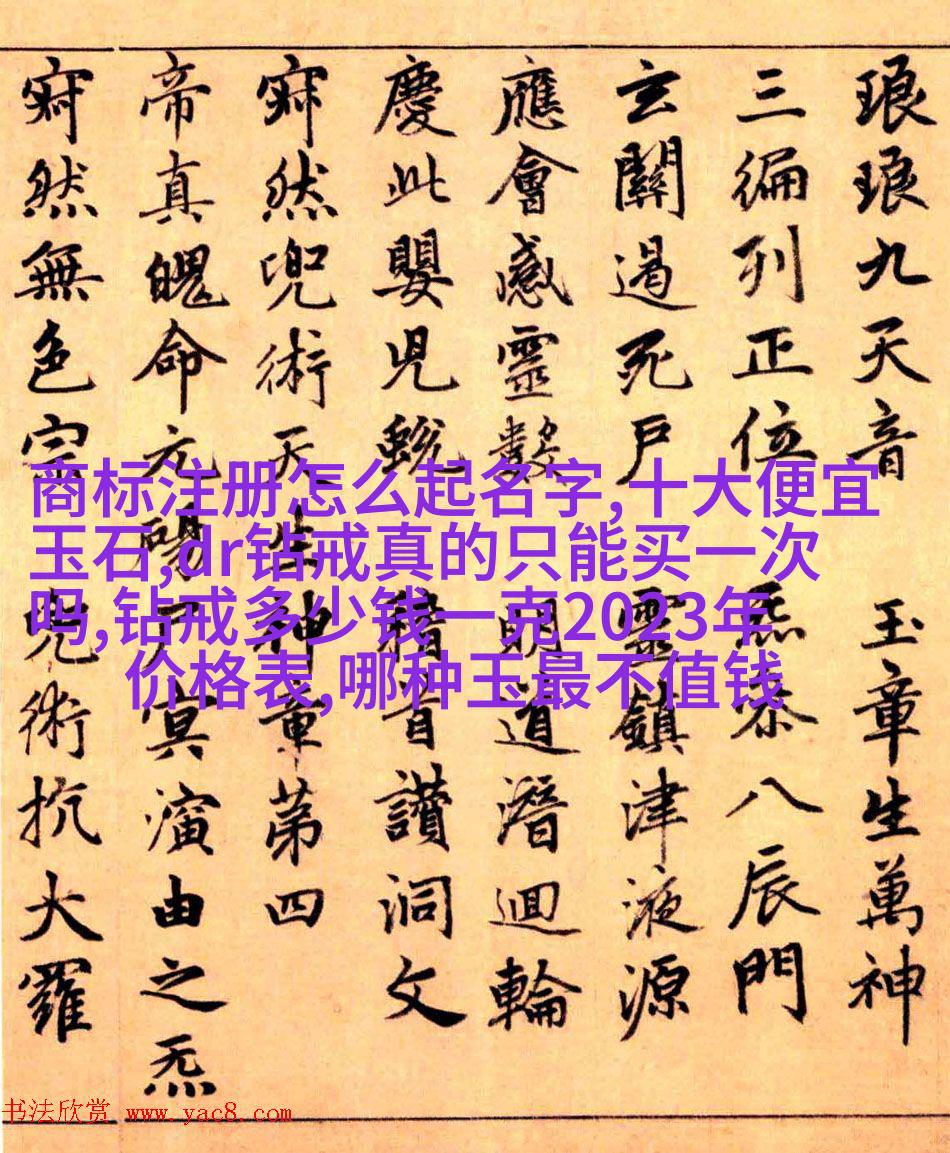 琅琅九天音 玉章生萬神
三編列正位 炁泰八辰門
玄關遏死户 靈鎮津液源
應會感靈數 明道潛迴輪
慶此嬰兒蛻 稽首讚洞文
寂然兜術天生神章第四
帝真魄命元陽冥演由之炁
寂然無色宗 兜術抗大羅
商标注册怎么起名字,十大便宜
玉石,dr钻戒真的只能买一次
吗,钻戒多少钱一克2023年
价格表,哪种玉最不值钱
书法欣赏 www.yac8.com